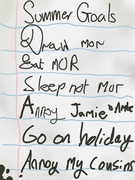 Summer Goals
Eat MOR
Sleep not Mor
Annoy Jamie
Go on holiday
Annoy My Cousins